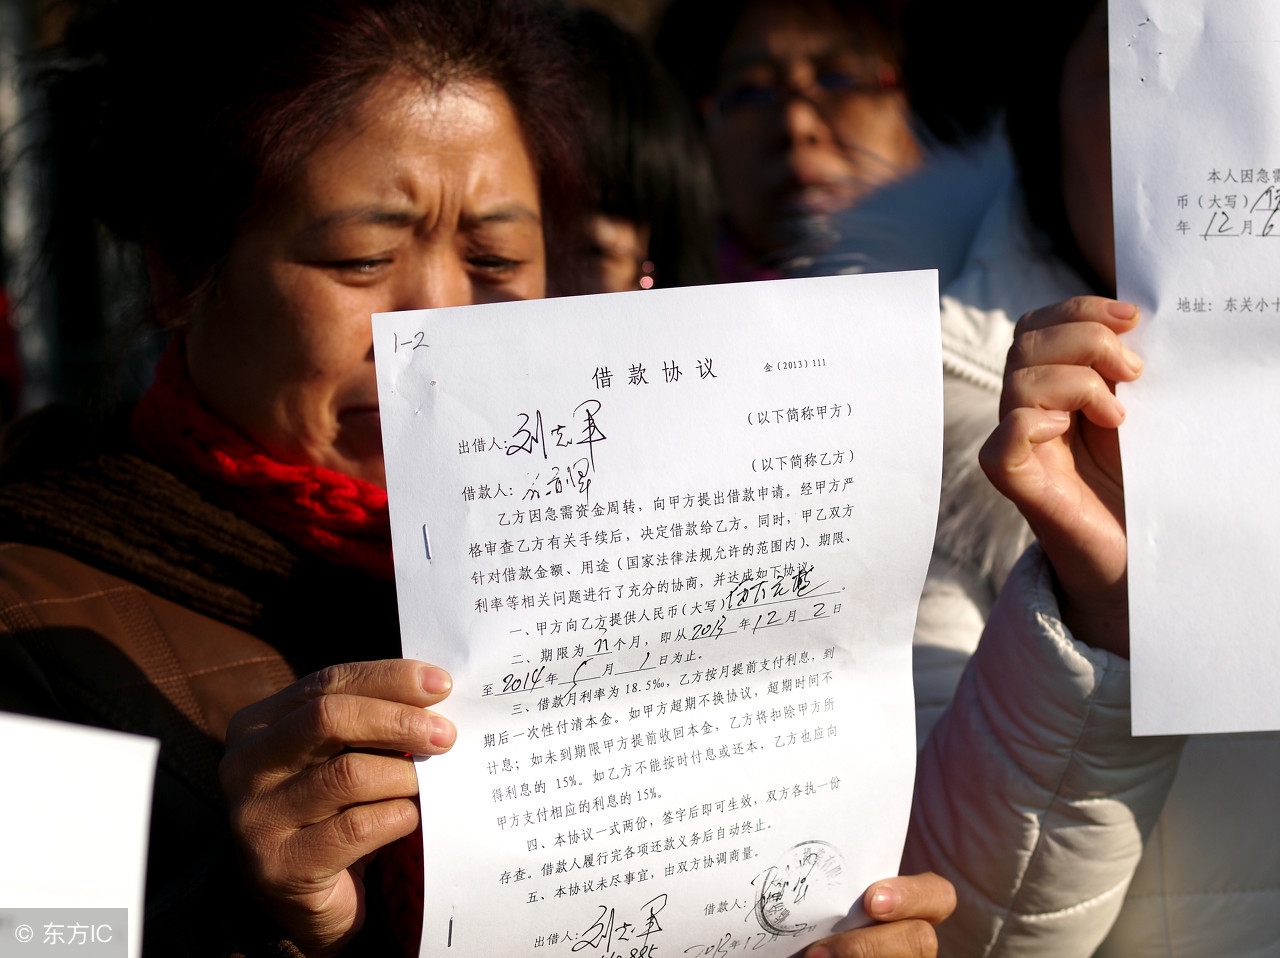 1-2
借款协议 金（2013）111
出借人：刘志军 （以下简称甲方）
借款人： （以下简称乙方）
乙方因急需资金周转，向甲方提出借款申请。经甲方严
格审查乙方有关手续后，决定借款给乙方。同时，甲乙双方
针对借款金额、用途（国家法律法规允许的范围内）、期限、
利率等相关问题进行了充分的协商，并达成如下协议：
一、甲方向乙方提供人民币（大写）。
二、期限为 个月，即从2013年12月2日
至2014年 月1日为止。
三、借款月利率为18.5‰，乙方按月提前支付利息，到
期后一次性付清本金。如甲方超期不换协议，超期时间不
计息；如未到期限甲方提前收回本金，乙方将扣除甲方所
得利息的 15%。如乙方不能按时付息或还本，乙方也应向
甲方支付相应的利息的15%。
四、本协议一式两份，签字后即可生效，双方各执一份
存查。借款人履行完各项还款义务后自动终止。
五、本协议未尽事宜，由双方协调商量。
出借人：刘志军 借款人：
2013年12月2日
本人因急需
币（大写）
年12月6
地址：东关小十
© 东方IC